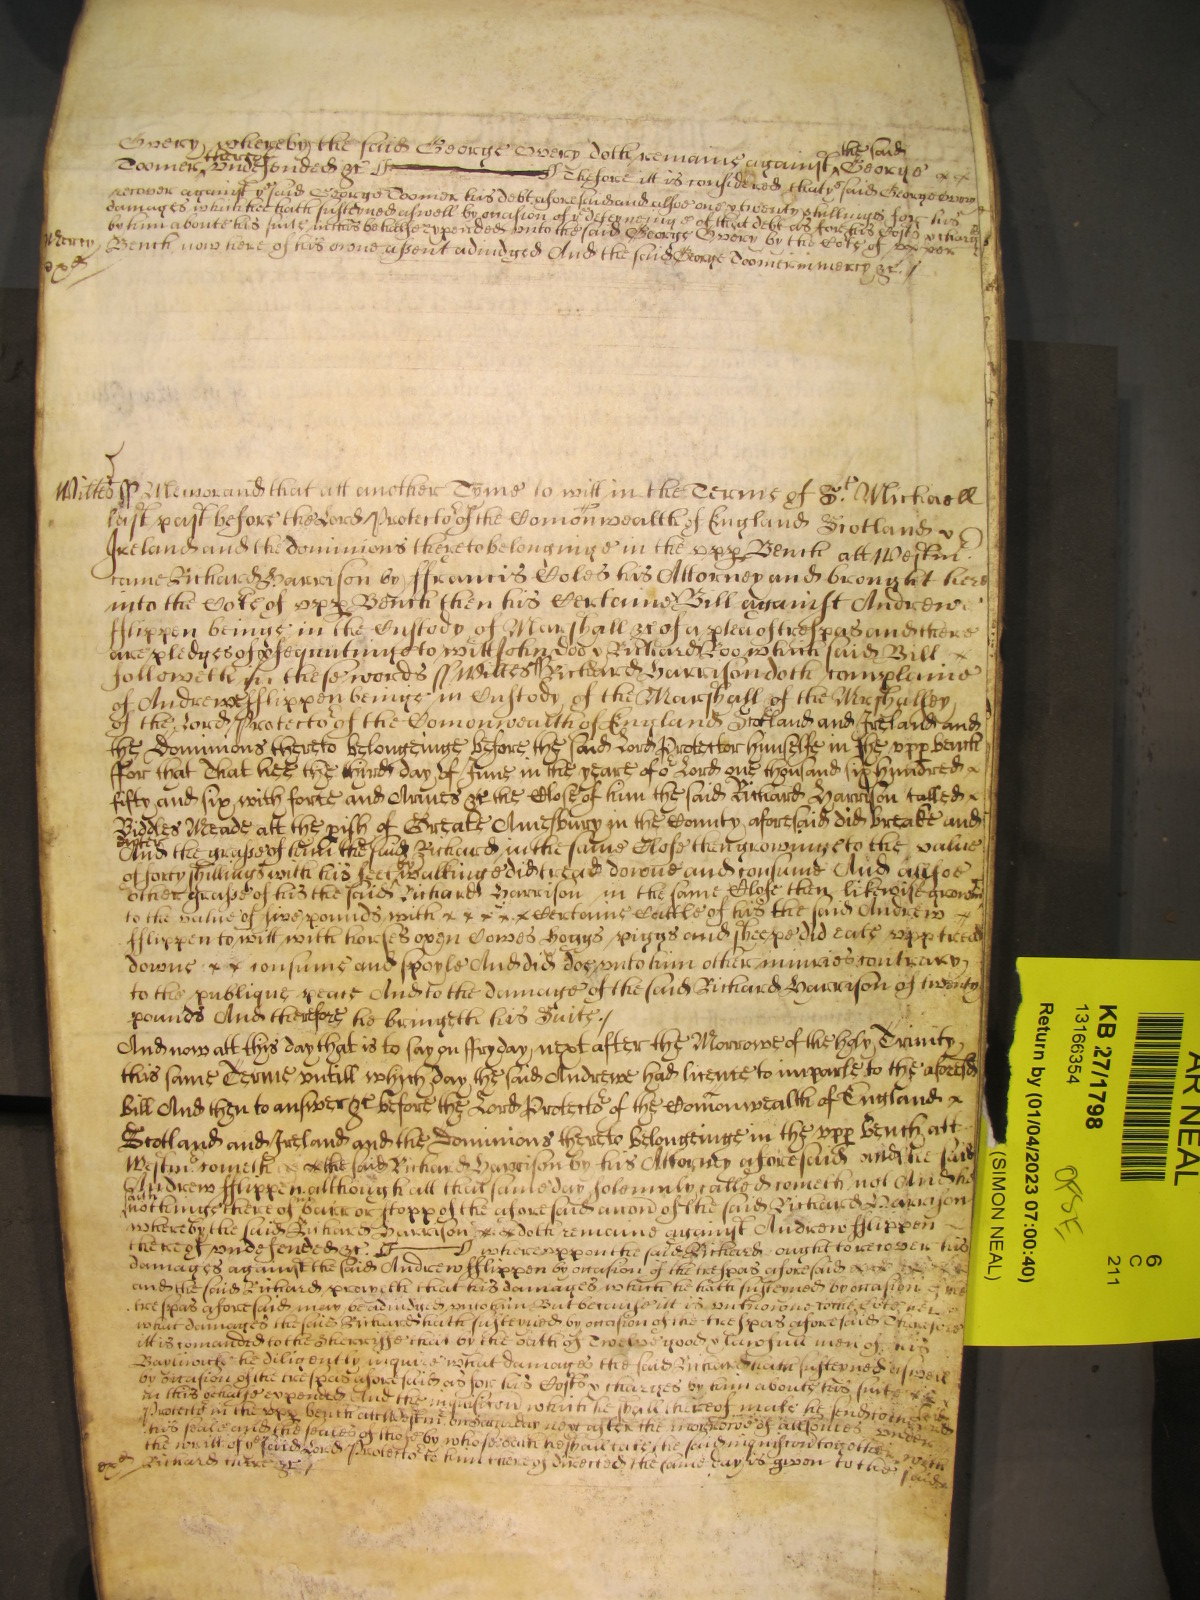 Overy whereby the said George Overy doth remaine against the said George x x
Toomer thereof undefended &c Therefore itt is considered that ye said George Overy
recover against ye said George Toomer his debt aforesaid and alsoe one & twenty shillings for his
damages which hee hath susteyned aswell by occasion of ye deteyneinge of that debt as for his Costs & charges
by him aboute his suite in this behalfe expended unto the said George Overy by the Cort of upper
Mercy
Bench now here of his owne assent adiudged And the said George Toomer in mercy &c
Wiltes ss Memorand that att another Tyme to witt in the Terme of St Michaell
last past before the Lord Protector of the Comonwealth of England Scotland &
Ireland and the dominions thereto belonginge in the upp Bench att Westm
came Richard Harrison by Francis Coles his Attorney and brought here
into the Cort of upp Bench then his Certaine Bill against Andrew
Fflippen beinge in the Custody of Marshall &c of a plea of trespas and there
are pledges of psequutinge to witt John Doo & Richard Roo which said Bill x
followeth in these words ss Wiltes ss Richard Harrison doth complaine
of Andrewe Fflippen beinge in Custody of the Marshall of the Mrshalley
of the Lord Protector of the Comonwealth of England Scotland and Ireland and
the Dominions thereto belongeinge before the said Lord Protector himselfe in the upp bench
ffor that That hee the third day of June in the yeare of or Lord one thousand six hundred x
fifty and six with force and Armes &c the Close of him the said Richard Harrison called x
Biddles Meade att the pish of Greate Amesbury in the County aforesaid did breake and
enter And the grasse of him the said Richard in the same Close then growinge to the value
of forty shillings with his feet by walkinge did tread downe and consume And alsoe
other grasse of his the said Richard Harrison in the same Close then likewise growinge
to the value of five pounds with x x x x Certaine Cattle of his the said Andrew x
Fflippen to witt with horses oxen Cowes hoggs piggs and sheepe did eate upp tread
downe x x consume and spoyle And did doe unto him other iniuries contrary
to the publique peace And to the damage of the said Richard Harrison of twenty
pounds And therefore he bringeth his Suite
And now att this day that is to say on ffryday next after the Morrowe of the holy Trinity
this same Terme untill which day the said Andrewe had licence to imparle to the aforesd
bill And then to answer &c before the Lord Protector of the Comonwealth of England x
Scotland and Ireland and the Dominions thereto belongeinge in the upp bench att
Westm cometh x x the said Richard Harrison by his Attorney aforesaid and the said
Andrew Fflippen although att that same day solemnly called cometh not And he
saith nothinge there of barr or stopp of the aforesaid accon of the said Richard Harrison
whereby the said Richard Harrison x x doth remaine against Andrew Fflippen
thereof undefended &c whereuppon the said Richard ought to recover his
damages against the said Andrew Fflippen by occasion of the trespas aforesaid x x x
and the said Richard prayeth that his damages which he hath susteyned by occasion of the
trespas aforesaid may be adiudged unto him But because itt is unknowne to the Cort here
what damages the said Richard hath susteyned by occasion of the trespas aforesaid Therefore
itt is comanded to the Sherriffe that by the oath of Twelve good & lawfull men of his
Baylwicke he diligently inquire what damages the said Richard hath susteyned aswell
by occasion of the trespas aforesaid as for his Costs & charges by him aboute his suite x x
in this behalfe expended And the inquisicon which he shall thereof make he send to the Lord
Protector in the upp bench att Westm on Saturday next after the morrowe of all soules under
his seale and the seales of those by whose oath he shall take the said inquisicon together with
the writt of ye said Lord Protector to him thereof directed the same day is given to the said
Richard there &c
AR NEAL
KB 27/1798
13166354
Return by (01/04/2023 07:00:40)
(SIMON NEAL)
6
C
211